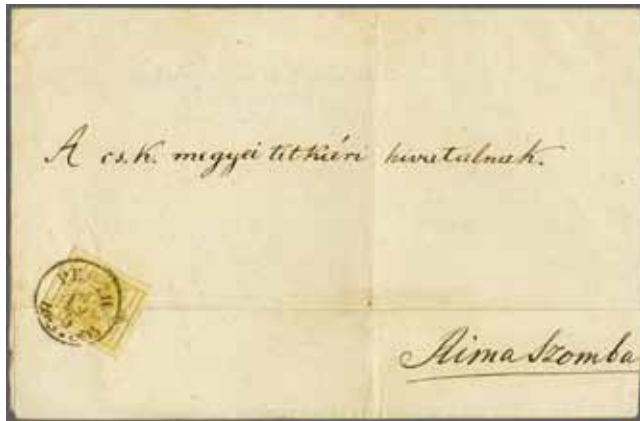 A cs. k. megyei titkiéri hivatalnak.
PESTH
Rima Szomba